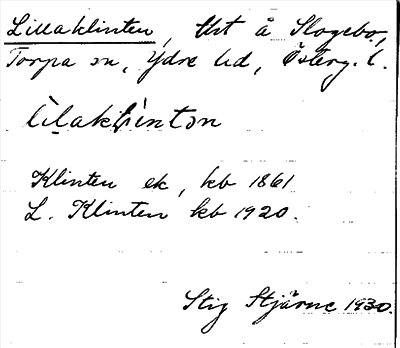 Lillaklinten, tht å Skogebo,
Torpa sn, Ydre hd, Österg. l.
Klinten ek, kb 1861
L. Klinten kb 1920.
Stig Stjärne 1930.